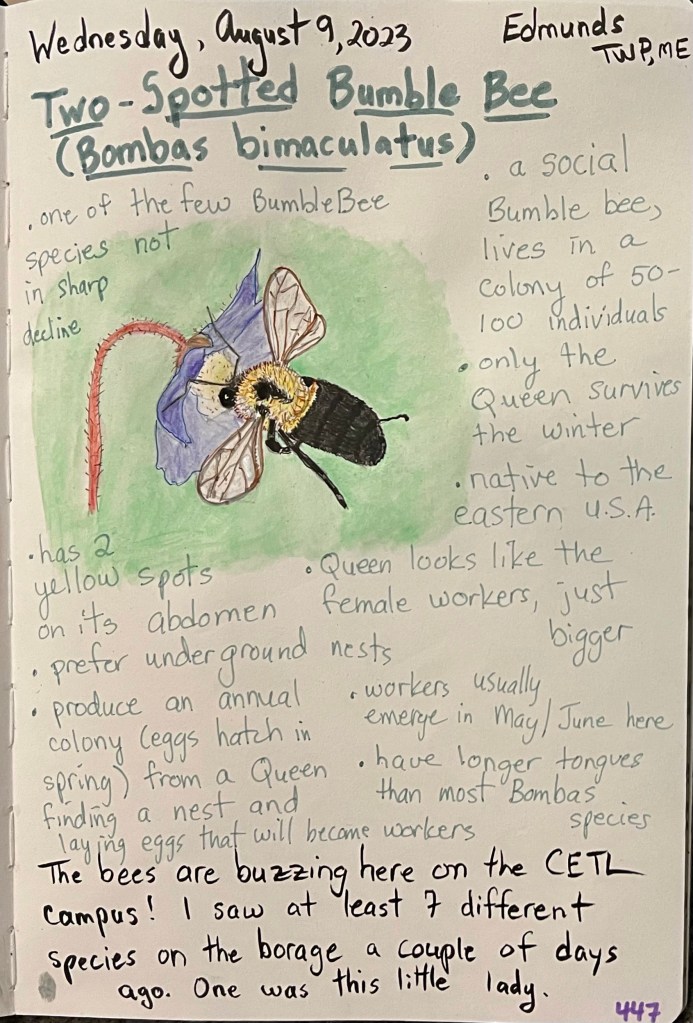 Wednesday, August 9, 2023
Edmunds
TWP, ME
Two-Spotted Bumble Bee
(Bombas bimaculatus)
. one of the few BumbleBee
species not
in sharp
decline
. a social
Bumble bee,
lives in a
colony of 50-
100 individuals
. only the
Queen survives
the winter
. native to the
eastern U.S.A.
. has 2
yellow spots
on its abdomen
. Queen looks like the
female workers, just
bigger
. prefer underground nests
. produce an annual
colony (eggs hatch in
spring) from a Queen
finding a nest and
laying eggs that will become workers
. workers usually
emerge in May/June here
. have longer tongues
than most Bombas
species
The bees are buzzing here on the CETL
campus! I saw at least 7 different
species on the borage a couple of days
ago. One was this little lady.
447